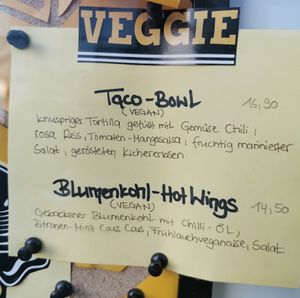 VEGGIE
Taco-Bowl 16,90
(VEGAN)
knuspriger Tortilla gefüllt mit Gemüse Chili,
rosa Reis, Tomaten-Mangosalsa, fruchtig marinierter
Salat, gerösteten Kichererbsen
Blumenkohl-Hot Wings 14,50
(VEGAN)
Gebackener Blumenkohl mit Chilli-ÖL,
Zitronen-Minz Cous Cous, Frühlauchveganaise, Salat